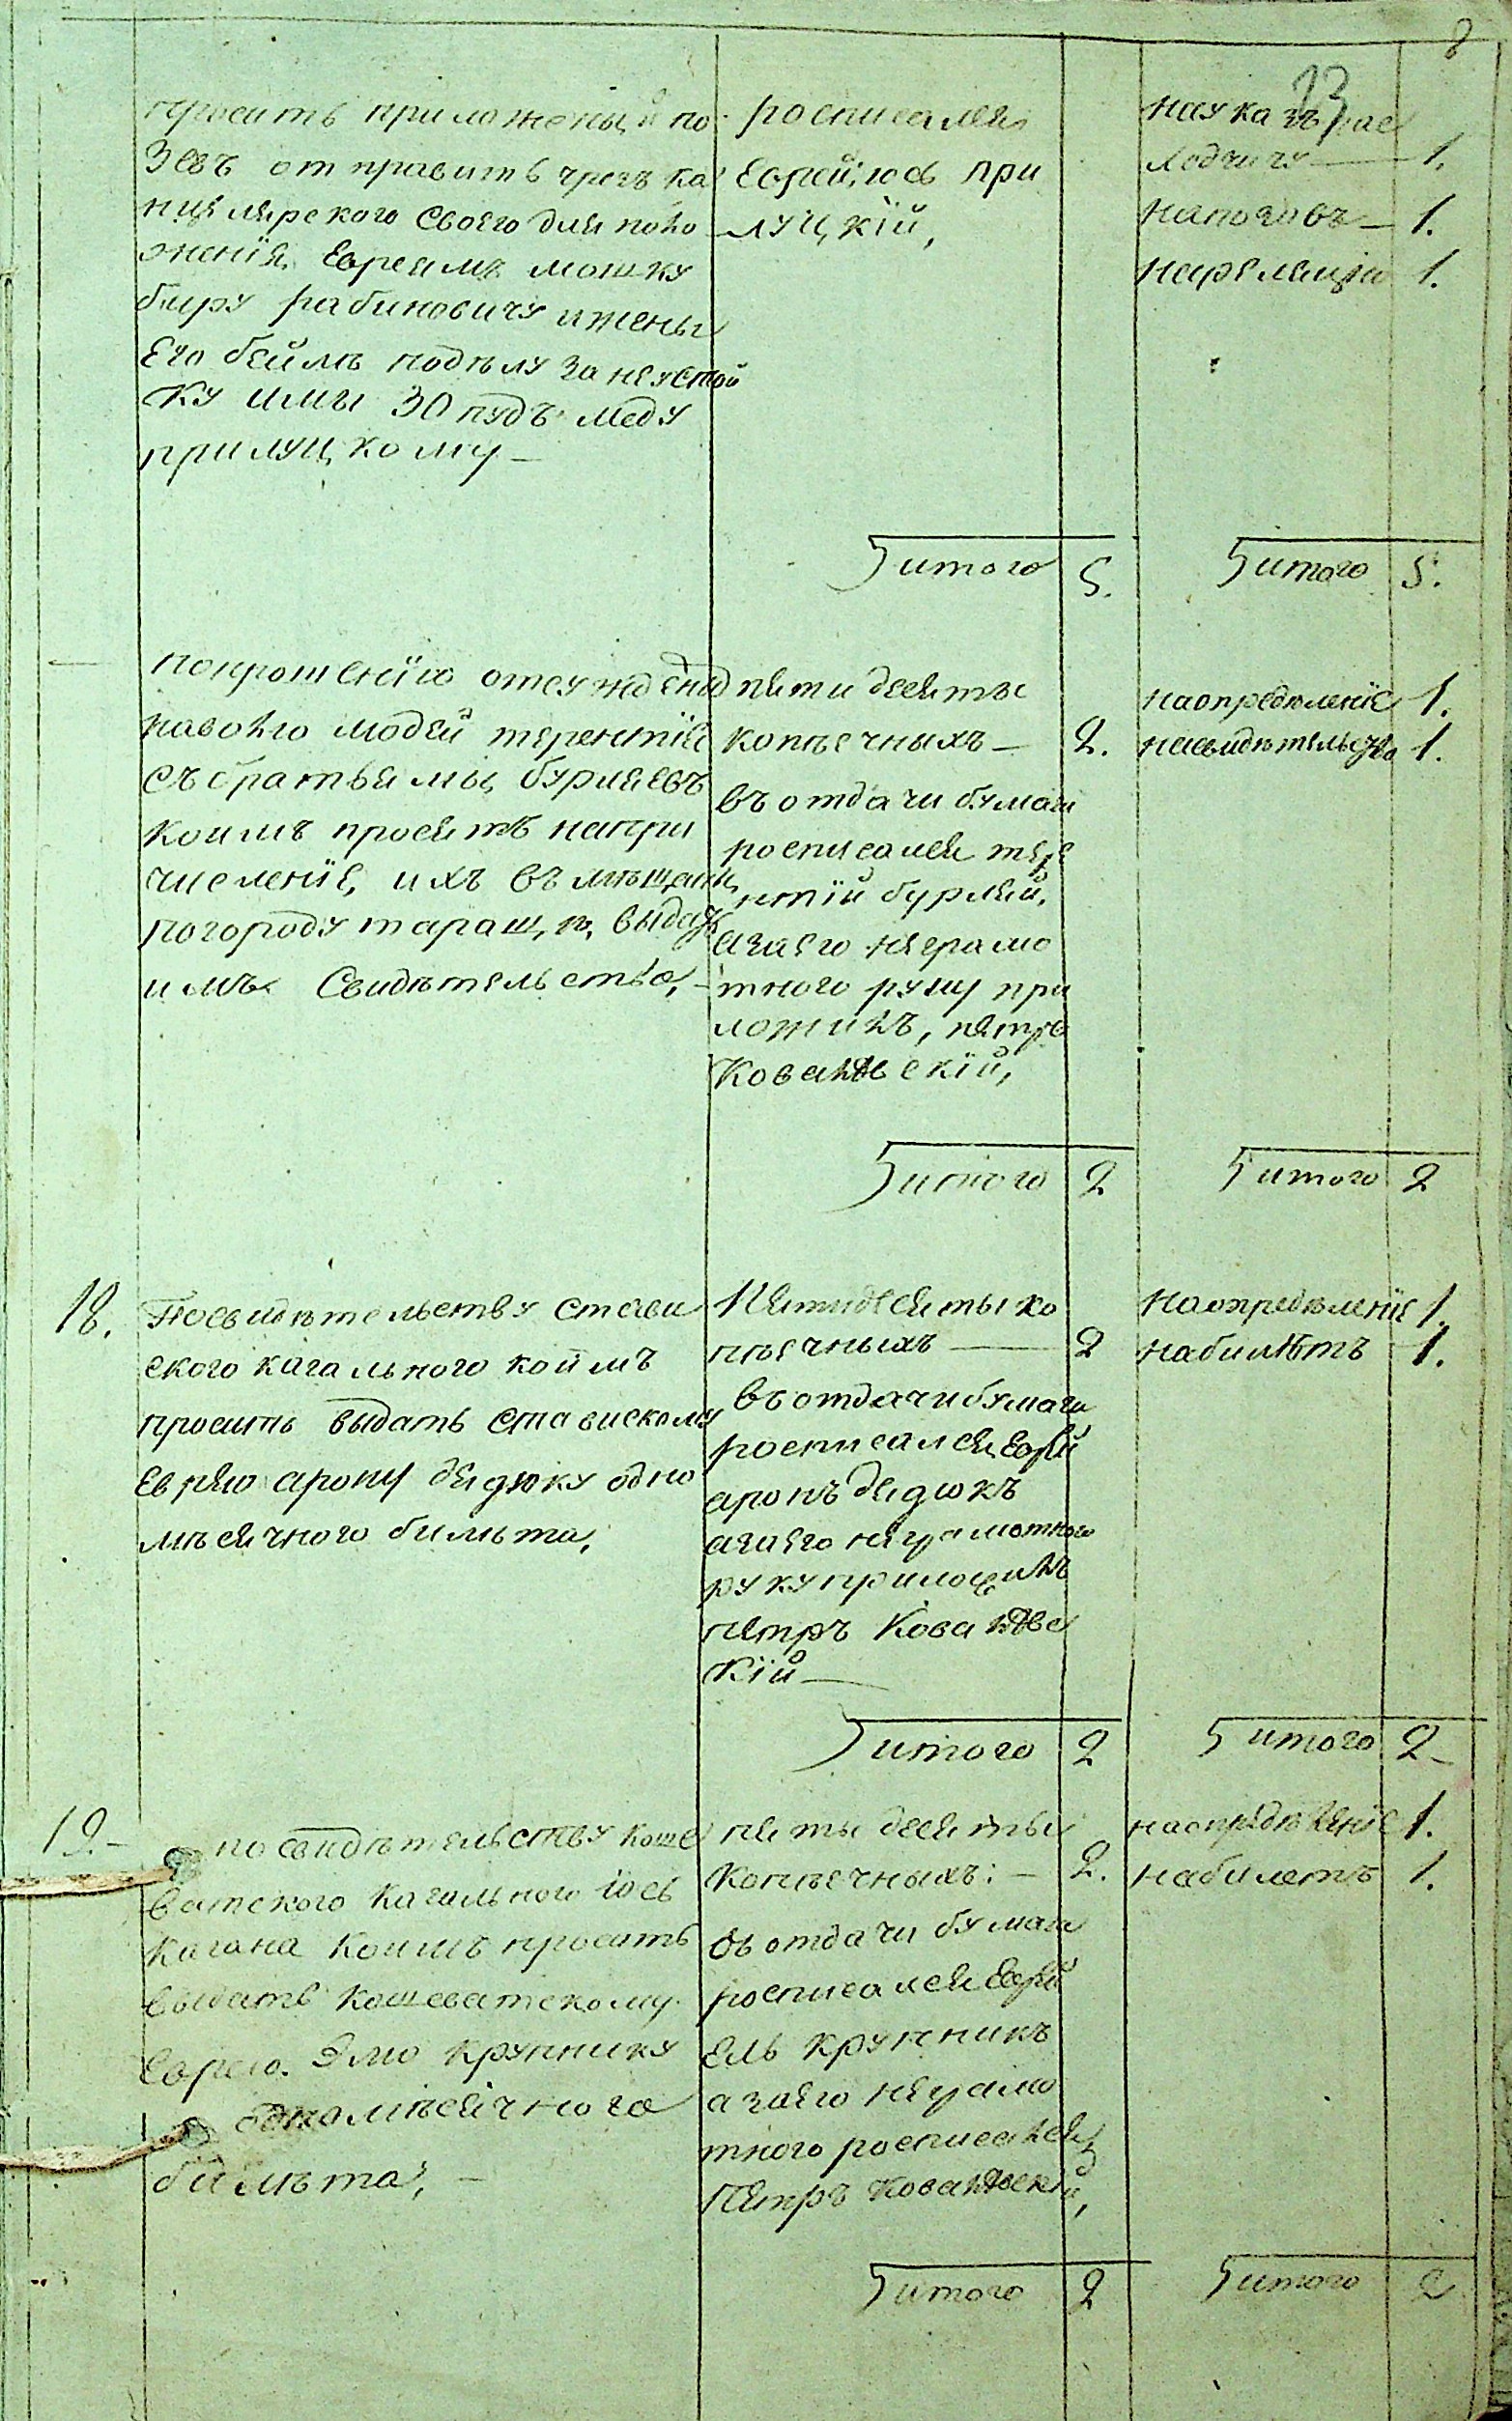 8
13
просить приложеный по
зевъ отправить чрезъ ка
нцелярского своего для поло
жения Евреямъ мошку
беру рабиновичу и жены
Его бейлѣ подѣлу за неустой
ку имы 30 пудъ меду
прилуцкому —
росписался
Еврей, іось при
луцкій,
науказъ рас
ходчику — 1.
напозовъ — 1.
нареляцію 1.
итого 5.
итого 5.
попрошенію отсужденых
наволю людей терентія
съ братьямы бурляевъ
коимъ просятъ напри
числение, ихъ въ мѣщане,
погороду тараще, выдать
имъ Свидѣтельство, —
пятидесяты
копѣечныхъ — 2.
въ отдачи бумаги
росписался тере
нтій бурлей,
азаего неграмо
тного руку при
ложилъ, петръ
Ковальскій,
наопредѣленіе 1.
насвидѣтельство 1.
итого 2
итого 2
18.
Посвидѣтельству стави
ского кагального коимъ
просить выдать ставискому
Еврею арону дядюку одно
мѣсячного билѣта,
Пятидесяты ко
пѣечныхъ — 2
въ отдачи бумаги
росписался Еврей
аронъ дядюкъ
азаего неграмотного
руку приложилъ
петръ Ковальс
кій —
Наопределеніе 1.
набилѣтъ — 1.
итого 2
итого 2
19. —
по свидѣтельству коше
ватского кагального іося
кагана коимъ просить
выдать кошеватскому
Еврею Элю крупнику
одномѣсячного
билѣта, —
пяты десяты
копѣечныхъ: — 2.
въ отдачи бумаги
росписался Еврей
Ель крупникъ
а заего неграмо
тного росписался
Петръ Ковальскій,
наопредѣление 1.
набилетъ 1.
итого 2
итого 2